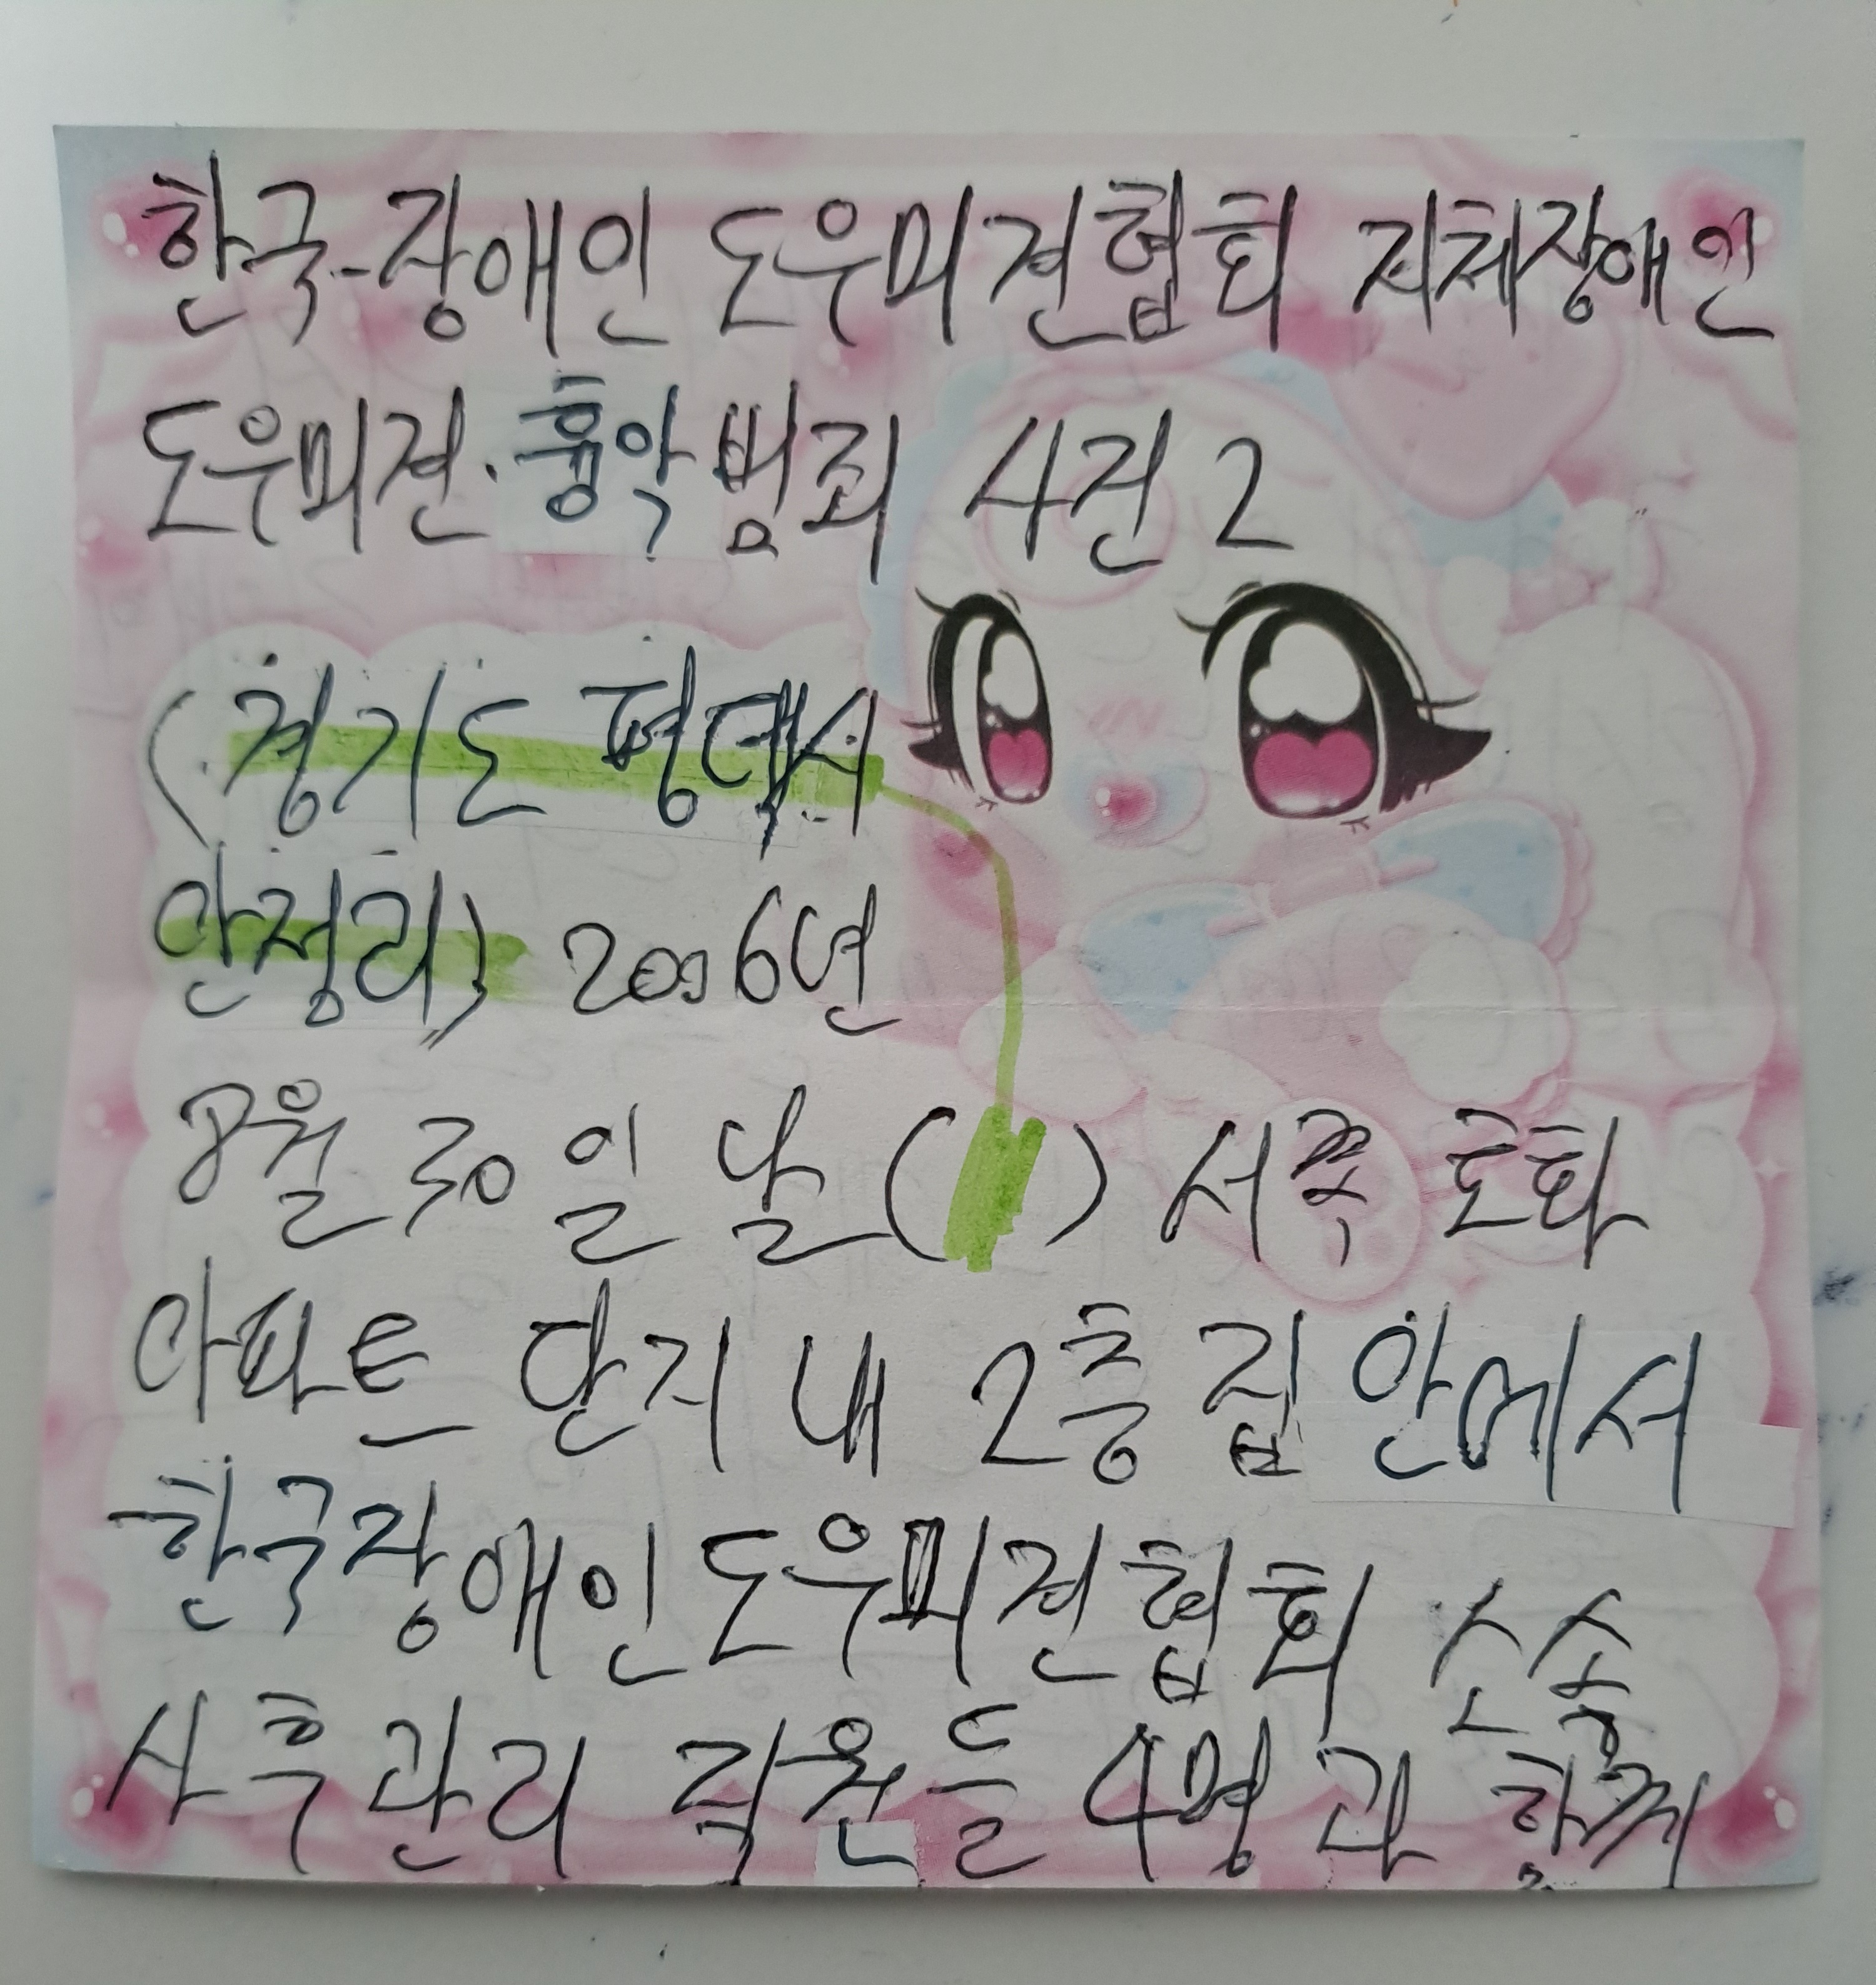 한국-장애인 도우미견협회 지체장애인
도우미견·흉악범죄 4건 2
(경기도 평택시
안정리) 2006년
8월 30일 날 ( ) 서쪽 로화
아파트 단지 내 2층 집 안에서
한국장애인도우미견협회 소송
사후관리 직원들 4명과 함께